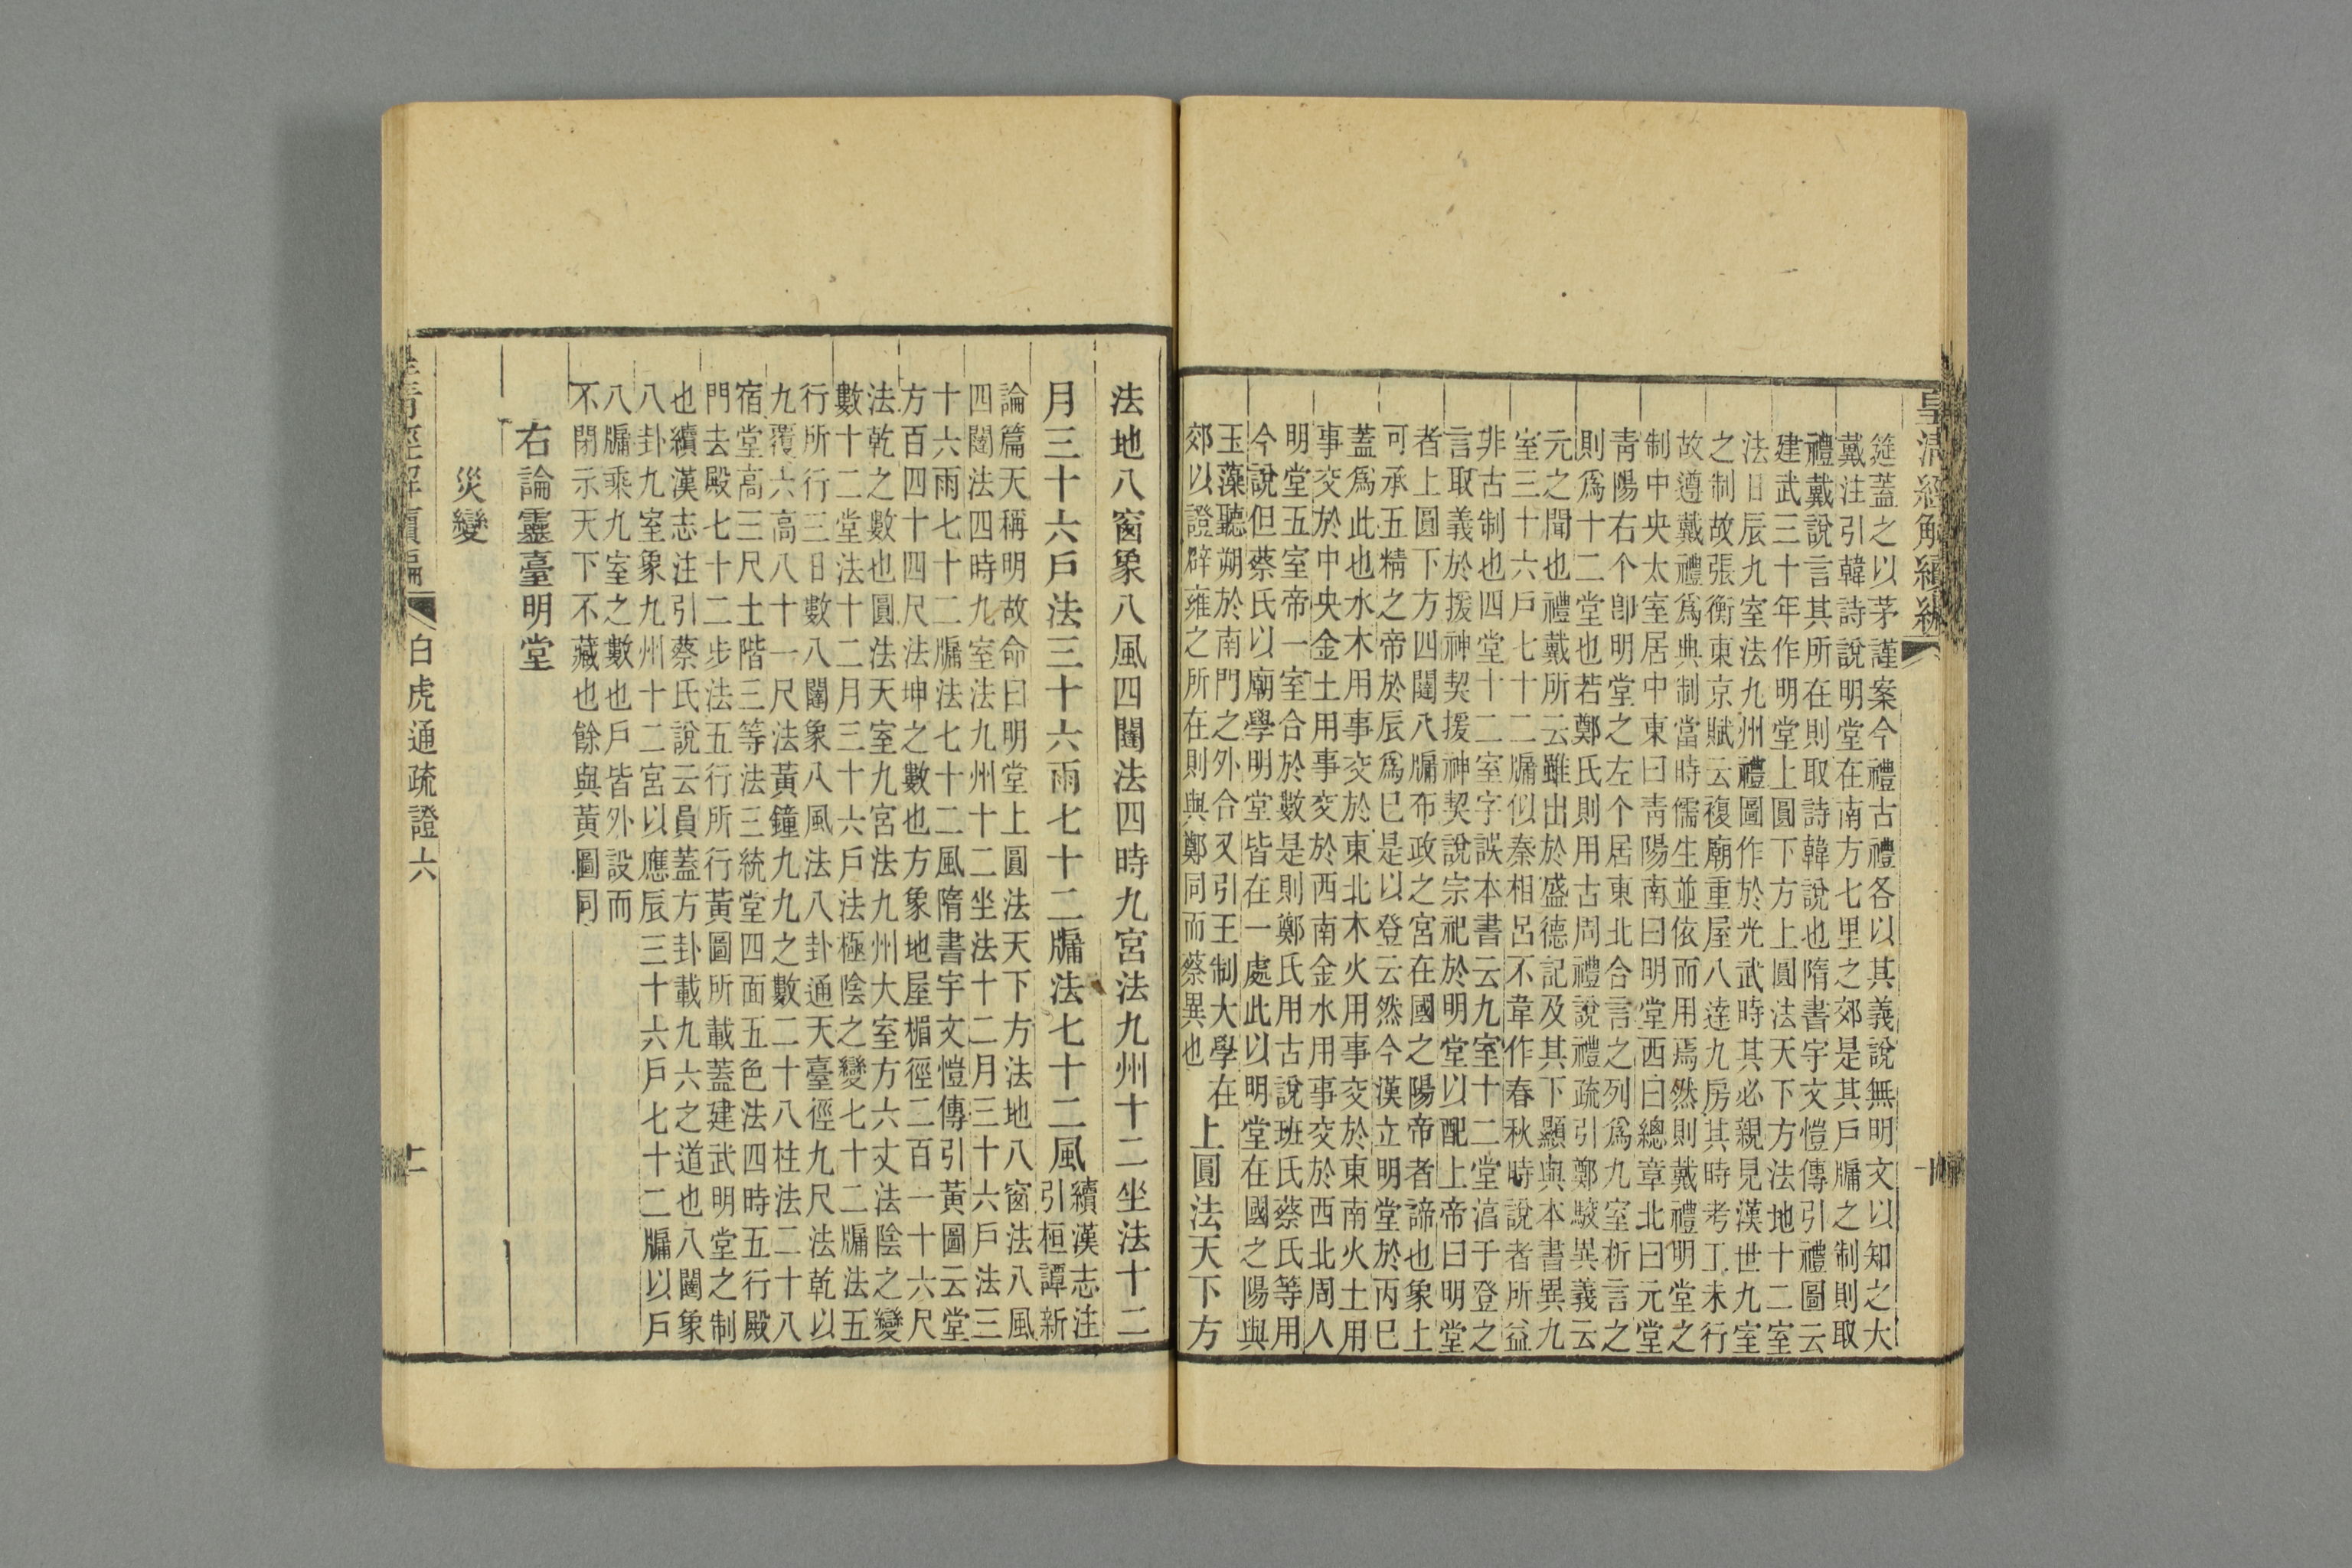 皇清經解續編
筵蓋之以茅謹案今禮古禮各以其義說無明文以知之大
戴注引韓詩說明堂在南方七里之郊是其戶牖之制則取
禮戴說言其所在則取詩韓說也隋書宇文愷傳引禮圖云
建武三十年作明堂上圓下方上圓法天下方法地十二室
法日辰九室法九州禮圖作於光武時其必親見漢世九室
之制故張衡東京賦云複廟重屋八達九房其時考工未行
故遵戴禮爲典制當時儒生並依而用焉然則戴禮明堂之
制中央太室居中東曰靑陽南曰明堂西曰總章北曰元堂
靑陽右个卽明堂之左个居東北合言之列爲九室析言之
則爲十二堂也若鄭氏則用古周禮說禮疏引鄭駁異義云
元之聞也禮戴所云雖出於盛德記及其下顯與本書異九
室三十六戶七十二牖似秦相呂不韋作春秋時說者所益
非古制也四堂十二室字誤本書云九室十二堂淳于登之
言取義於援神契援神契說宗祀於明堂以配上帝曰明堂
者上圓下方四闥八牖布政之宮在國之陽帝者諦也象上
可承五精之帝於辰爲巳是以登云然今漢立明堂於丙巳
蓋爲此也水木用事交於東北木火用事交於東南火土用
事交於中央金土用事交於西南金水用事交於西北周人
明堂五室帝一室合於數是則鄭氏用古說班氏蔡氏等用
今說但蔡氏以廟學明堂皆在一處此以明堂在國之陽與
玉藻聽朔於南門之外合又引王制大學在
郊以證辟雍之所在則與鄭同而蔡異也
上圓法天下方
十
法地八窗象八風四闥法四時九宮法九州十二坐法十二
月三十六戶法三十六雨七十二牖法七十二風
續漢志注
引桓譚新
論篇天稱明故命曰明堂上圓法天下方法地八窗法八風
四闥法四時九室法九州十二坐法十二月三十六戶法三
十六雨七十二牖法七十二風隋書宇文愷傳引黃圖云堂
方百四十四尺法坤之數也方象地屋楣徑二百一十六尺
法乾之數也圓法天室九宮法九州大室方六丈法陰之變
數十二堂法十二月三十六戶法極陰之變七十二牖法五
行所行三日數八闥象八風法八卦通天臺徑九尺法乾以
九覆六高八十一尺法黃鐘九九之數二十八柱法二十八
宿堂高三尺土階三等法三統堂四面五色法四時五行殿
門去殿七十二步法五行所行黃圖所載蓋建武明堂之制
也續漢志注引蔡氏說云員蓋方卦載九六之道也八闥象
八卦九室象九州十二宮以應辰三十六戶七十二牖以戶
八牖乘九室之數也戶皆外設而
不閉示天下不藏也餘與黃圖同
右論靈臺明堂
災變
皇清經解續編
白虎通疏證六
十一